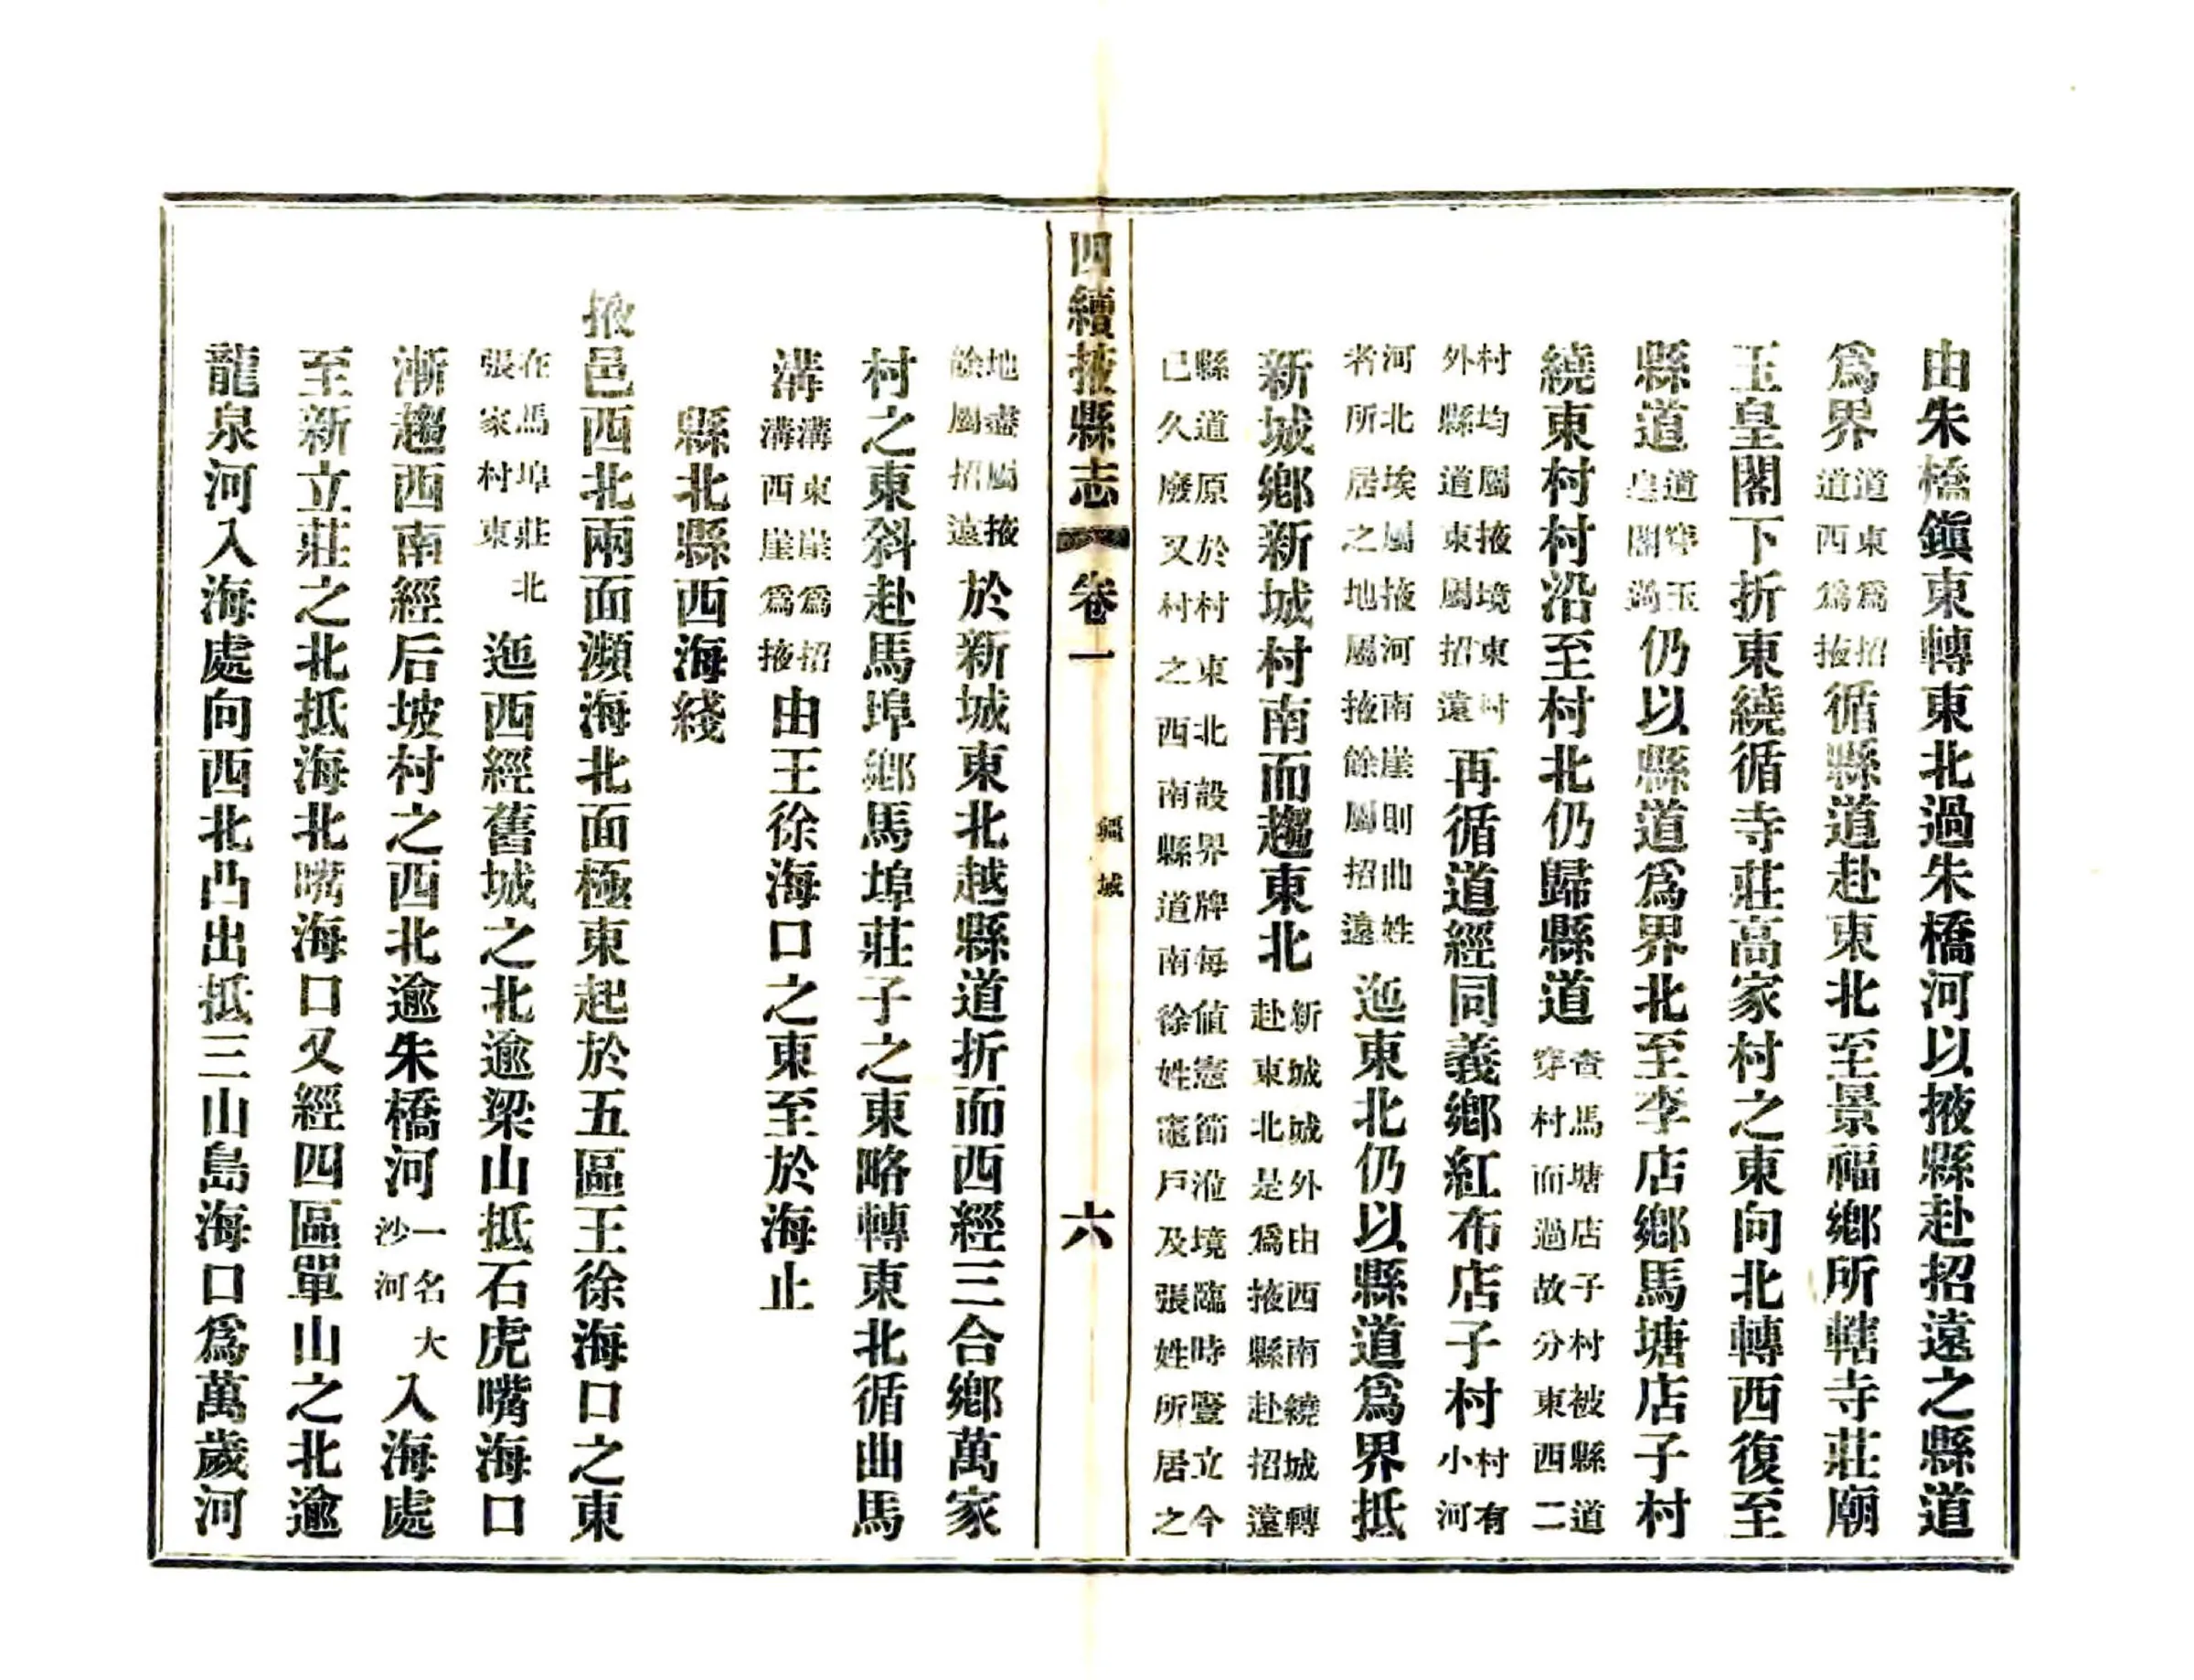 由朱橋鎮東轉東北過朱橋河以掖縣赴招遠之縣道
爲界道東爲招道西爲掖循縣道赴東北至景福鄉所轄寺莊廟
玉皇閣下折東繞循寺莊高家村之東向北轉西復至
縣道道穿玉皇閣過仍以縣道爲界北至李店鄉馬塘店子村
繞東村村沿至村北仍歸縣道查馬塘店子村被縣道穿村而過故分東西二
村均屬掖境東村外縣道東屬招遠再循道經同義鄉紅布店子村村有小河
河北埃屬掖河南崖則曲姓者所居之地屬掖餘屬招遠迤東北仍以縣道爲界抵
新城鄉新城村南而趨東北新城城外由西南繞城轉赴東北是爲掖縣赴招遠
縣道原於村東北設界牌每值憲節涖境臨時豎立今已久廢又村之西南縣道南徐姓竈戶及張姓所居之
四續掖縣志 卷一 疆域 六
地盡屬掖餘屬招遠於新城東北越縣道折而西經三合鄉萬家
村之東斜赴馬埠鄉馬埠莊子之東略轉東北循曲馬
溝溝東崖爲招溝西崖爲掖由王徐海口之東至於海止
縣北縣西海綫
掖邑西北兩面瀕海北面極東起於五區王徐海口之東
在馬埠莊北張家村東迤西經舊城之北逾梁山抵石虎嘴海口
漸趨西南經后坡村之西北逾朱橋河一名大沙河入海處
至新立莊之北抵海北嘴海口又經四區單山之北逾
龍泉河入海處向西北凸出抵三山島海口爲萬歲河